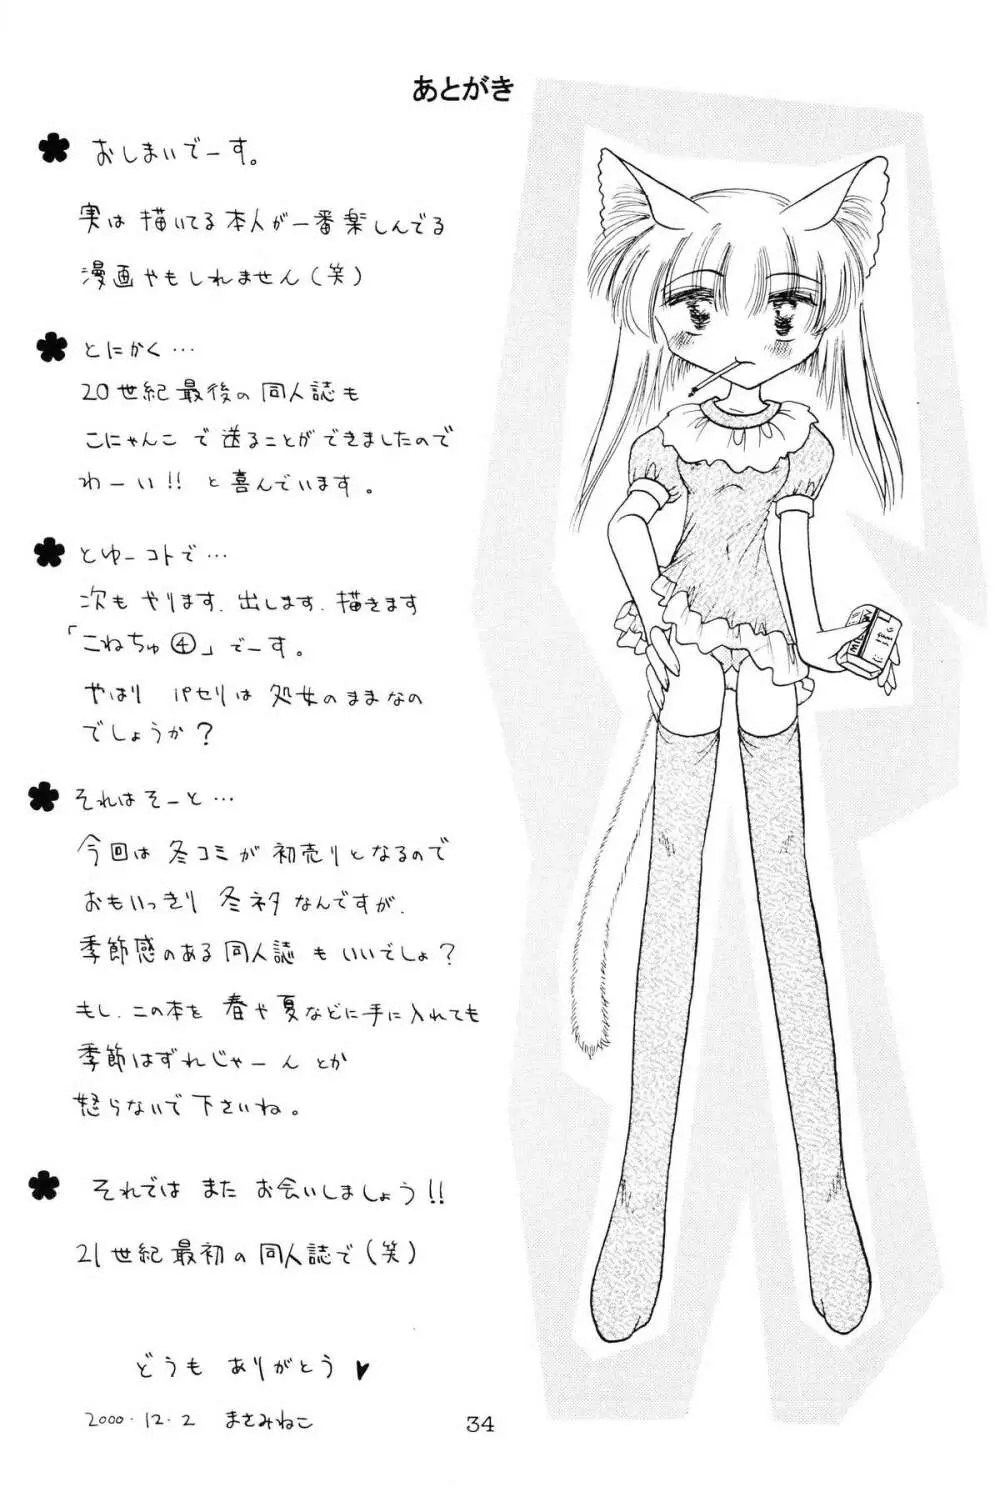 あとがき
おしまいでーす。
実は描いてる本人が一番楽しんでる
漫画やもしれません(笑)
とにかく…
20世紀最後の同人誌も
こにゃんこで送ることができましたので
わーい!!と喜んでいます。
とゆーコトで…
次もやります.出します.描きます
「こねちゅ④」でーす。
やはりパセリは処女のままなの
でしょうか?
それはそーと…
今回は冬コミが初売りとなるので
おもいっきり冬ネタなんですが.
季節感のある同人誌もいいでしょ?
もし.この本を春や夏などに手に入れても
季節はずれじゃーんとか
怒らないで下さいね。
それではまたお会いしましょう!!
21世紀最初の同人誌で(笑)
どうもありがとう♥
2000.12.2 まさみねこ
34